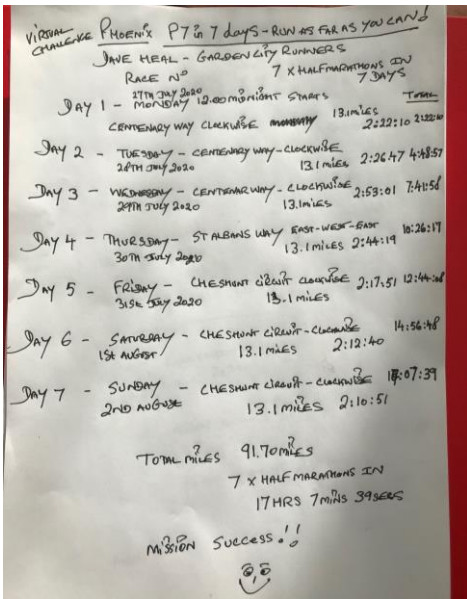 VIRTUAL CHALLENGE PHOENIX P7 in 7 days - RUN AS FAR AS YOU CAN!
DAVE HEAL - GARDEN CITY RUNNERS
RACE No 7 x HALF MARATHONS IN 7 DAYS
27TH JULY 2020
DAY 1 - MONDAY 12.00 MIDNIGHT STARTS TOTAL
CENTENARY WAY CLOCKWISE 13.1 MILES 2:22:10 2:22:10
DAY 2 - TUESDAY - CENTENARY WAY - CLOCKWISE 2:26:47 4:48:57
28TH JULY 2020 13.1 MILES
DAY 3 - WEDNESDAY - CENTENARY WAY - CLOCKWISE 2:53:01 7:41:58
29TH JULY 2020 13.1 MILES
DAY 4 - THURSDAY - ST ALBANS WAY EAST-WEST-EAST 10:26:17
30TH JULY 2020 13.1 MILES 2:44:19
DAY 5 - FRIDAY - CHESHUNT CIRCUIT CLOCKWISE 2:17:51 12:44:08
31ST JULY 2020 13.1 MILES
DAY 6 - SATURDAY - CHESHUNT CIRCUIT - CLOCKWISE 14:56:48
1ST AUGUST 13.1 MILES 2:12:40
DAY 7 - SUNDAY - CHESHUNT CIRCUIT - CLOCKWISE 17:07:39
2ND AUGUST 13.1 MILES 2:10:51
TOTAL MILES 91.70 MILES
7 x HALF MARATHONS IN
17 HRS 7 MINS 39 SECS
MISSION SUCCESS!!